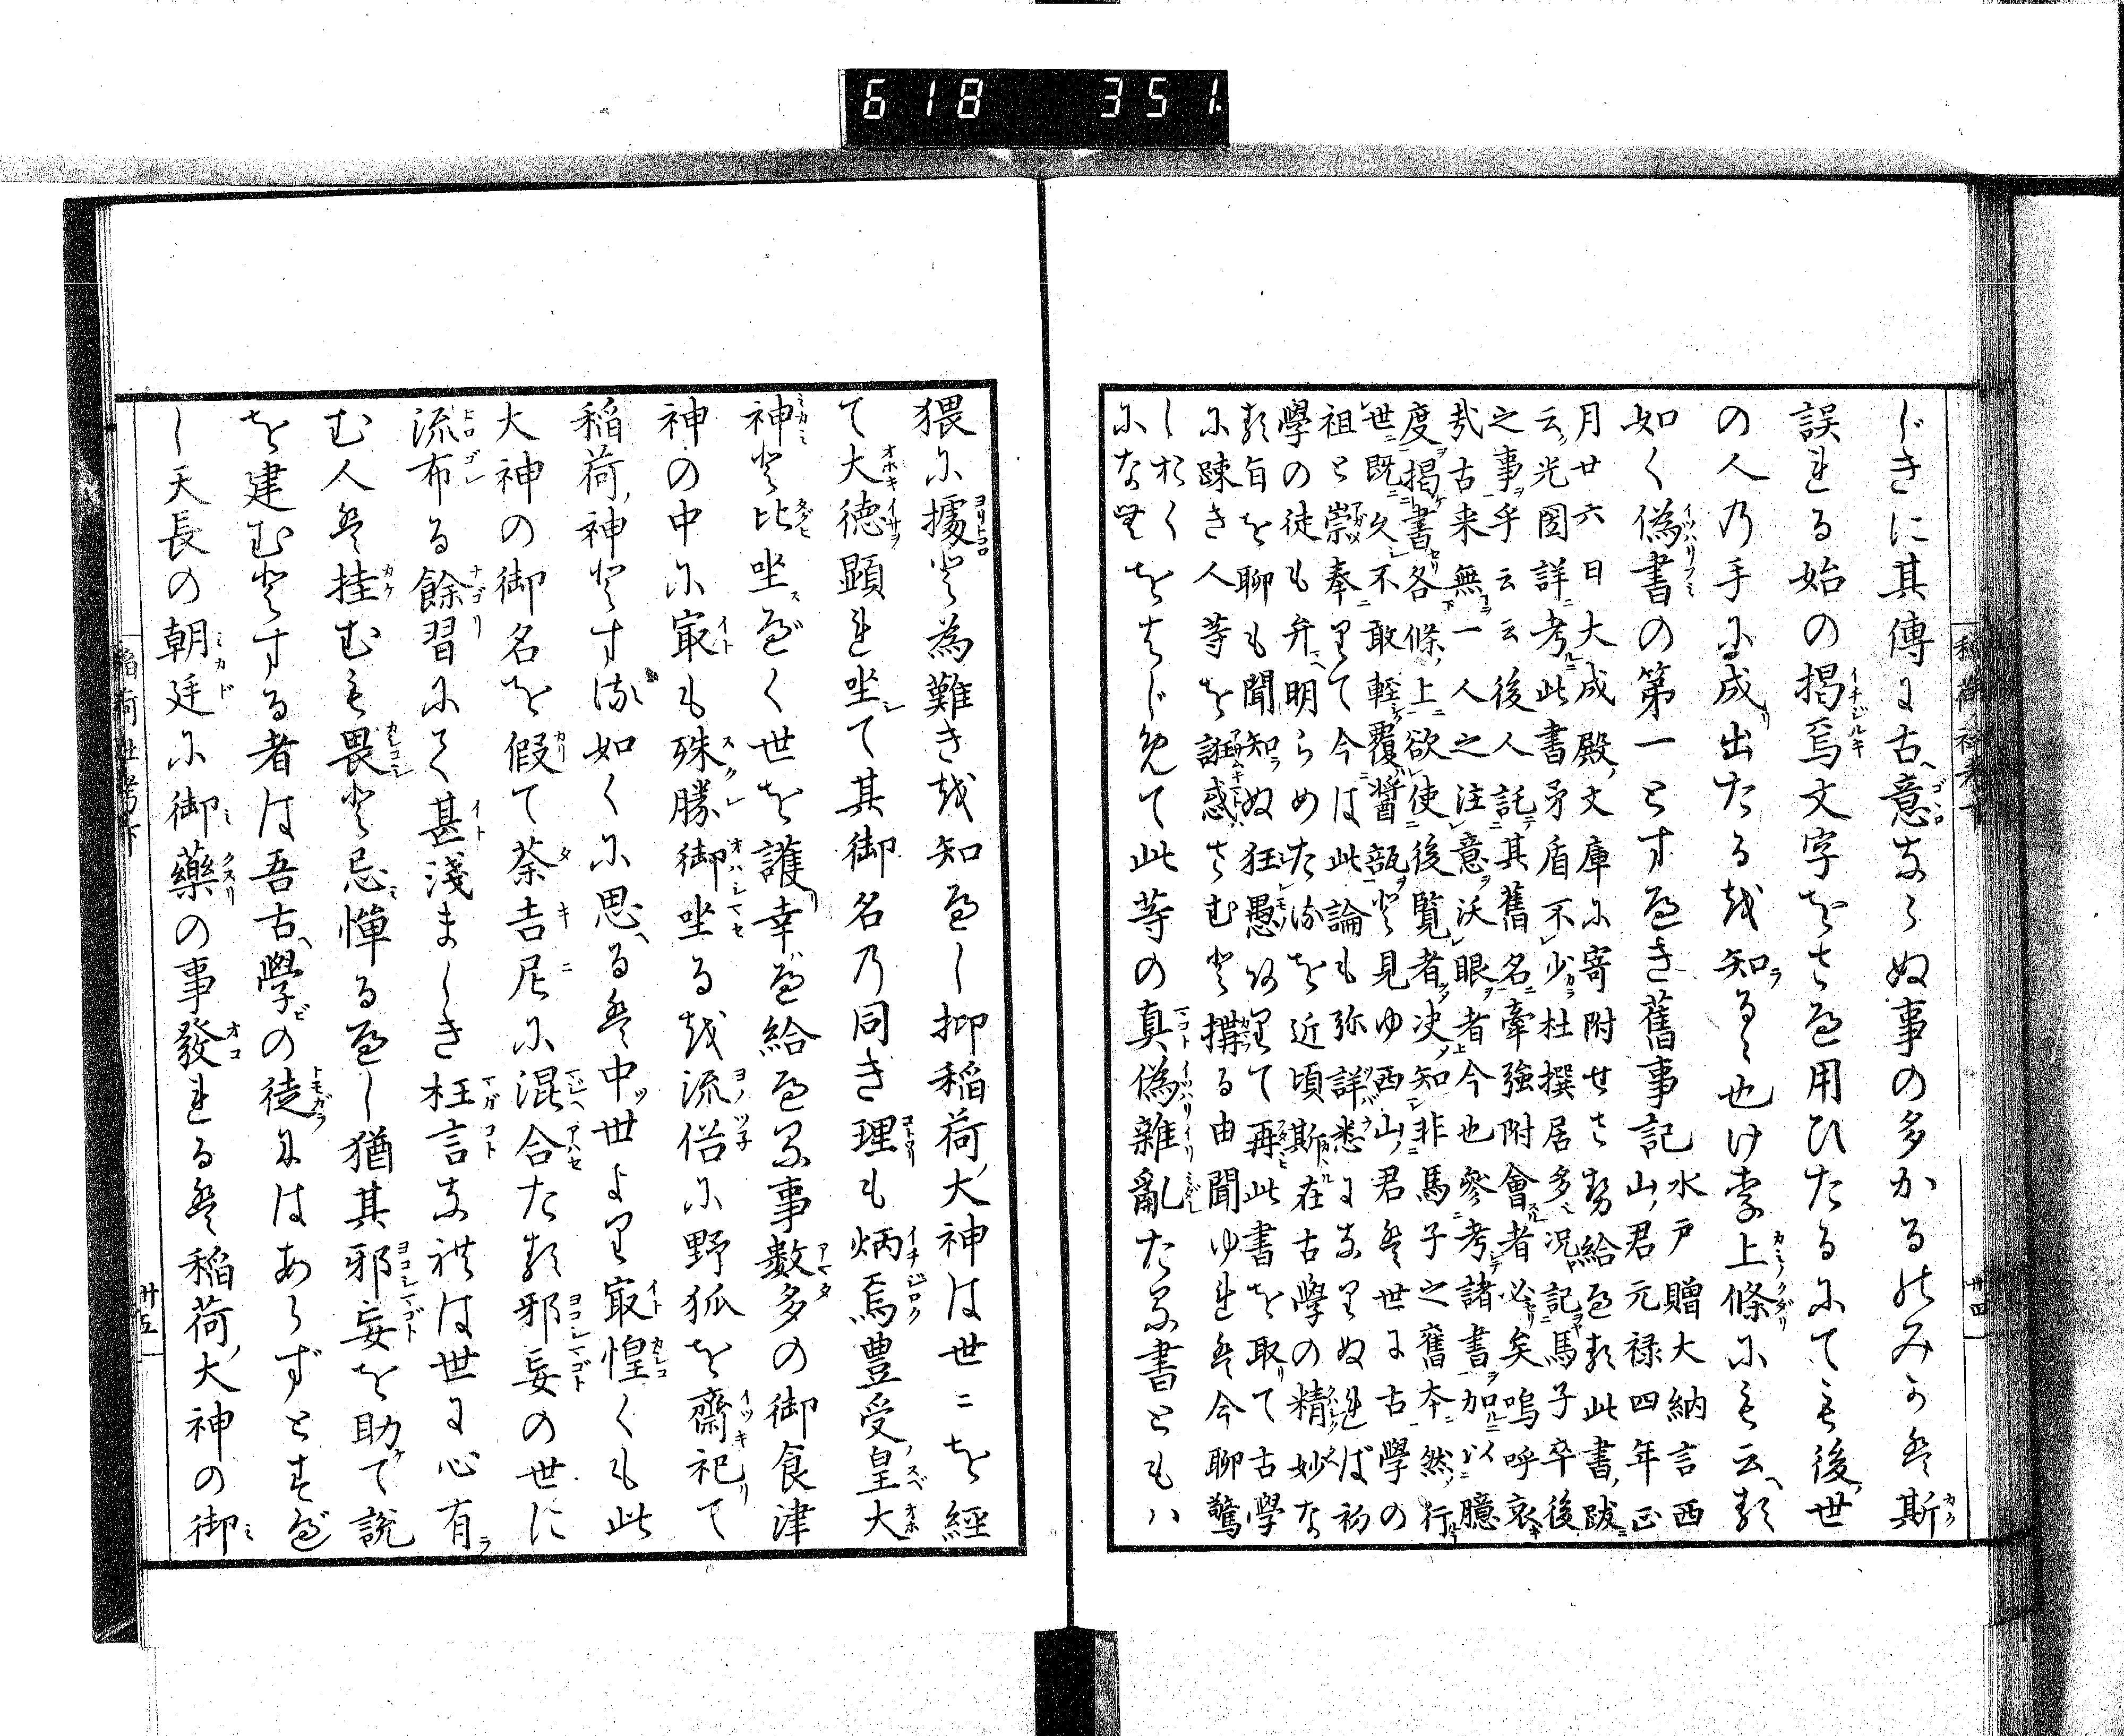 618 351
稲荷社考下
卅四
じきに其傳に古意ならぬ事の多かるのみかは斯
誤れる始の掲焉文字をさへ用ひたるにても後世
の人乃手に成出たる越知るゝ也け李上條にも云る
如く偽書の第一とすへき舊事記
水戸贈大納言西
山君元禄四年正
月廿六日大成殿文庫に寄附せさ勢給へる此書跋
云光圀詳考此書矛盾不少杜撰居多況記馬子卒後
之事乎云云後人託其舊名牽強附會者必矣嗚呼哀
哉古来無一人之注意沃眼者今也參考諸書加以臆
度掲書各條上欲使後覧者决知非馬子之舊本然行
世既久不敢輕覆醬瓿と見ゆ西山君は世に古學の
祖と崇奉りて今は此論も弥詳悉になりぬれば初
學の徒も弁明らめたるを近頃斯在古學の精妙な
る旨を聊も聞知ぬ狂愚の有て再此書を取て古學
に踈き人等を誑惑さむと搆る由聞ゆれは今聊驚
しおく
になむをはじめて此等の真偽雑亂たる書ともハ
猥に據と為難き越知へし抑稲荷大神は世ニを經
て大徳顕れ坐て其御名乃同き理も炳焉豊受皇大
神と比坐べく世を護幸べ給へる事數多の御食津
神の中に最も殊勝御坐る越流俗に野狐を齋祀て
稲荷神とする如くに思るは中世より最惶くも此
大神の御名を假て荼吉尼に混合たる邪妄の世に
流布る餘習にて甚淺ましき枉言なれは世に心有
む人は挂むも畏と忌憚るへし猶其邪妄を助て説
を建むとする者は吾古學の徒にはあらずとすべ
し天長の朝廷に御藥の事發れるは稲荷大神の御
稲荷社考下
卅五